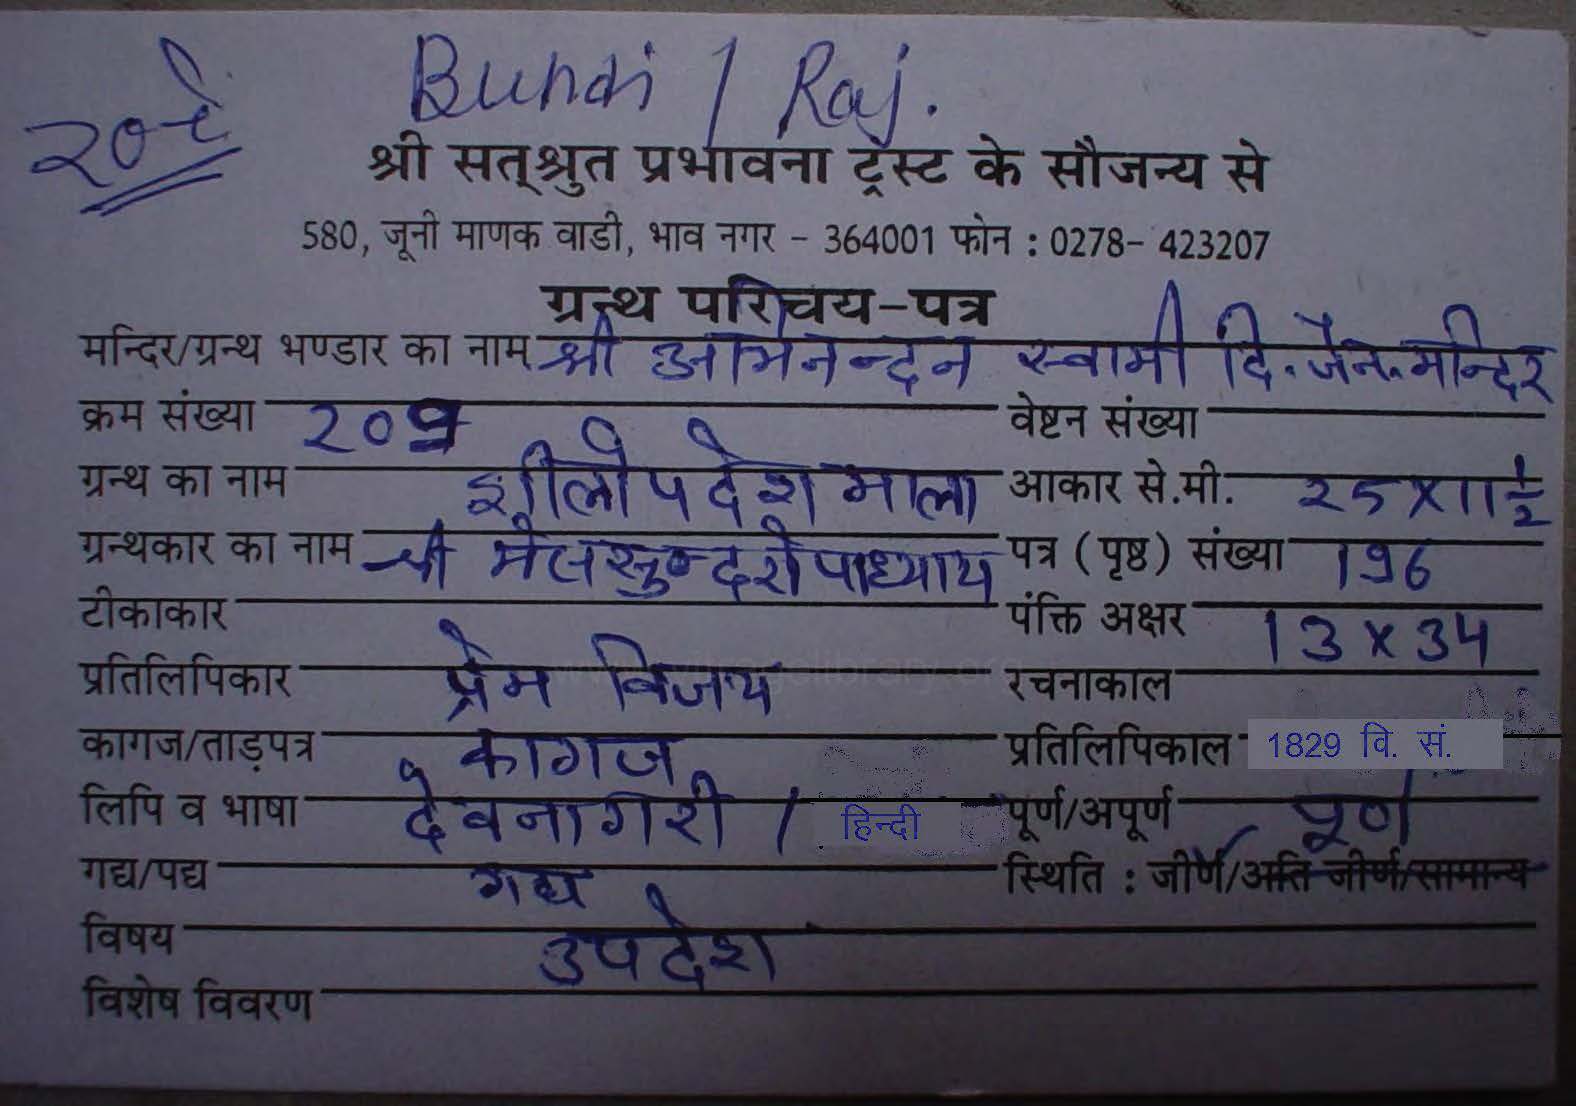 Bundi / Raj.
२०९
श्री सत्‌श्रुत प्रभावना ट्रस्ट के सौजन्य से
580, जूनी माणक वाडी, भाव नगर - 364001 फोन : 0278- 423207
ग्रन्थ परिचय-पत्र
मन्दिर/ग्रन्थ भण्डार का नाम श्री अभिनन्दन स्वामी दि. जैन. मन्दिर
क्रम संख्या 209 वेष्टन संख्या
ग्रन्थ का नाम शीलोपदेश माला आकार से.मी. 25 X 11 1/2
ग्रन्थकार का नाम श्री पत्र (पृष्ठ) संख्या 196
टीकाकार पंक्ति अक्षर 13 x 34
प्रतिलिपिकार प्रेम विजय रचनाकाल
कागज/ताड़पत्र कागज प्रतिलिपिकाल 1829 वि. सं.
लिपि व भाषा देवनागरी / हिन्दी पूर्ण/अपूर्ण पूर्ण
गद्य/पद्य गद्य स्थिति : जीर्ण/अति जीर्ण/सामान्य
विषय उपदेश
विशेष विवरण